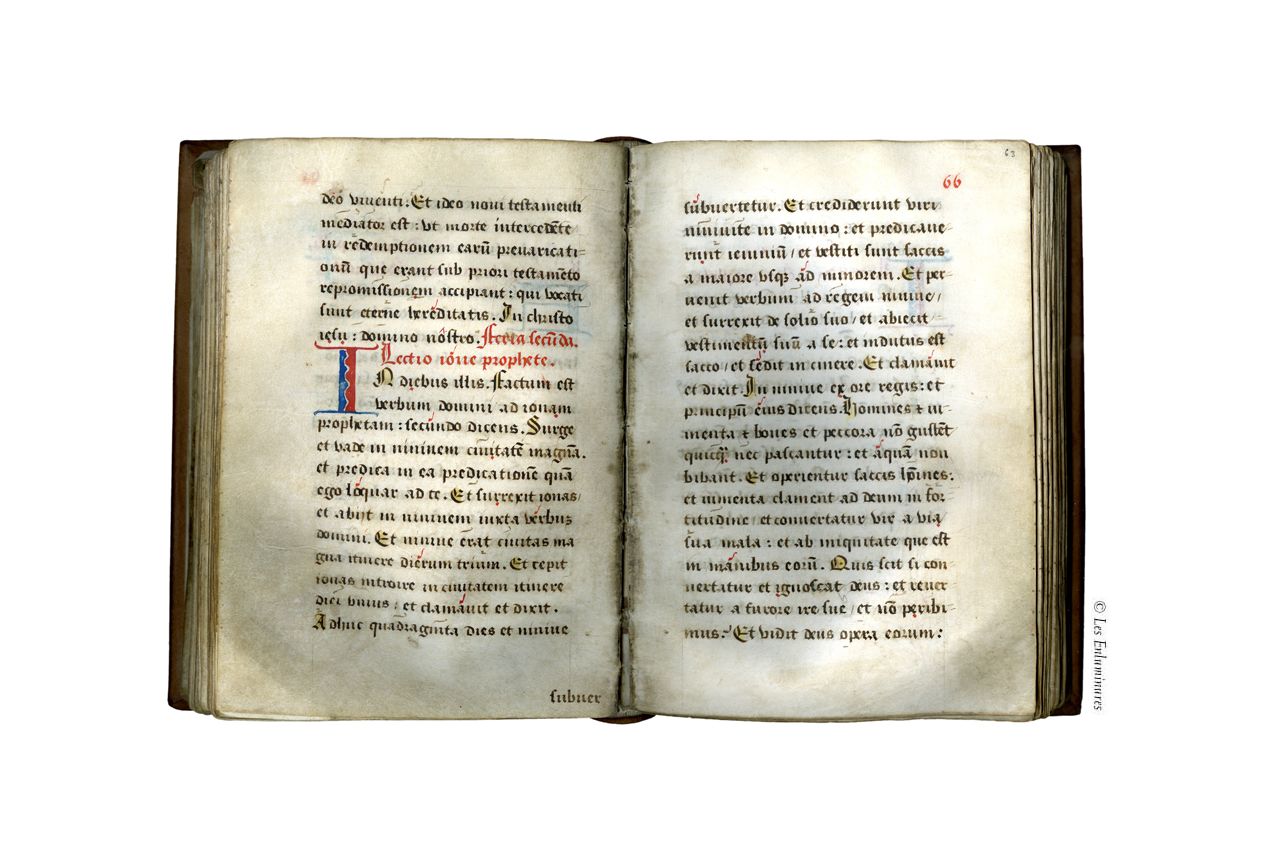 deo viventi. Et ideo novi testamenti
mediator est: ut morte intercedēte
in redemptionem earū prevaricati-
onū que erant sub priori testamēto
repromissionem accipiant: qui vocati
sunt eterne hereditatis. In christo
iesu: domino nostro. Feria secūda.
Lectio ione prophete.
IN diebus illis. Factum est
verbum domini ad ionam
prophetam: secundo dicens. Surge
et vade in niniven civitatē magnā.
et predica in ea predicationē quā
ego loquar ad te. Et surrexit ionas/
et abijt in niniven iuxta verbum
domini. Et ninive erat civitas ma
gna itinere dierum trium. Et cepit
ionas introire in civitatem itinere
diei unius: et clamavit et dixit.
Adhuc quadraginta dies et ninive
subver
63
66
subvertetur. Et crediderunt viri
ninivite in domino: et predicave-
runt ieiuniū/ et vestiti sunt saccis
a maiore usqꝫ ad minorem. Et per-
venit verbum ad regem ninive/
et surrexit de solio suo/ et abiecit/
vestimentū suū a se: et indutus est
sacco/ et sedit in cinere. Et clamavit
et dixit. In ninive ex ore regis: et
principū eius dicens. Homines ⁊ iu-
menta ⁊ boves et peccora nō gustēt
quicqꝫ nec pascantur: et aquam non
bibant. Et operientur saccis hoīnes:
et iumenta clament ad deum in for-
titudine/ et convertatur vir a via
sua mala: et ab iniquitate que est
in manibus eorū. Quis scit si con-
vertatur et ignoscat deus: et rever-
tatur a furore ire sue/ et nō peribi-
mus: Et vidit deus opera eorum:
© Les Enluminures